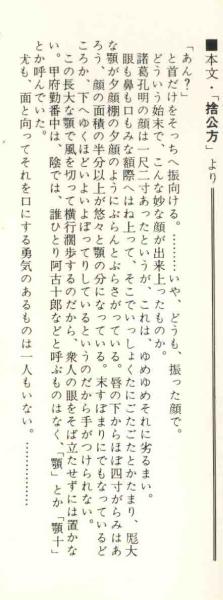 ■本文・「捨公方」より
「あん?」
と首だけをそっちへ振向ける。………いや、どうも、振った顔で。
どういう始末で、こんな妙な顔が出来上ったものか。
諸葛孔明の顔は一尺二寸あったというが、これは、ゆめゆめそれに劣るまい。
眼も鼻も口もみな額際へはね上って、そこでいっしょくたにごたごたとかたまり、厖大
な顎が夕顔棚の夕顔のようにぶらんとぶらさがっている。唇の下からほぼ四寸がらみはあ
ろう、顔の面積の半分以上が悠々と顎の分になっている。末すぼまりにでもなっているど
ころか、下へゆくほどいよいよぼってりしているというのだから手がつけられない。
この長大な顎で風を切って横行濶歩するのだから、衆人の眼をそば立たせずには置かな
い。甲府勤番中は、陰では、誰ひとり阿古十郎などと呼ぶものはなく、「顎」とか「顎十」
とか呼んでいた。
尤も、面と向ってそれを口にする勇気のあるものは一人もいない。……………